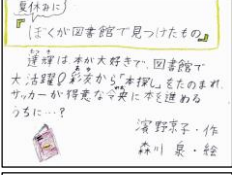 夏休みに
『ぼくが図書館で見つけたもの』
達輝は本が大好きで、図書館で
大活躍♪彩友から「本探し」をたのまれ、
サッカーが得意な央に本を進める
うちに…?
濱野京子・作
森川泉・絵